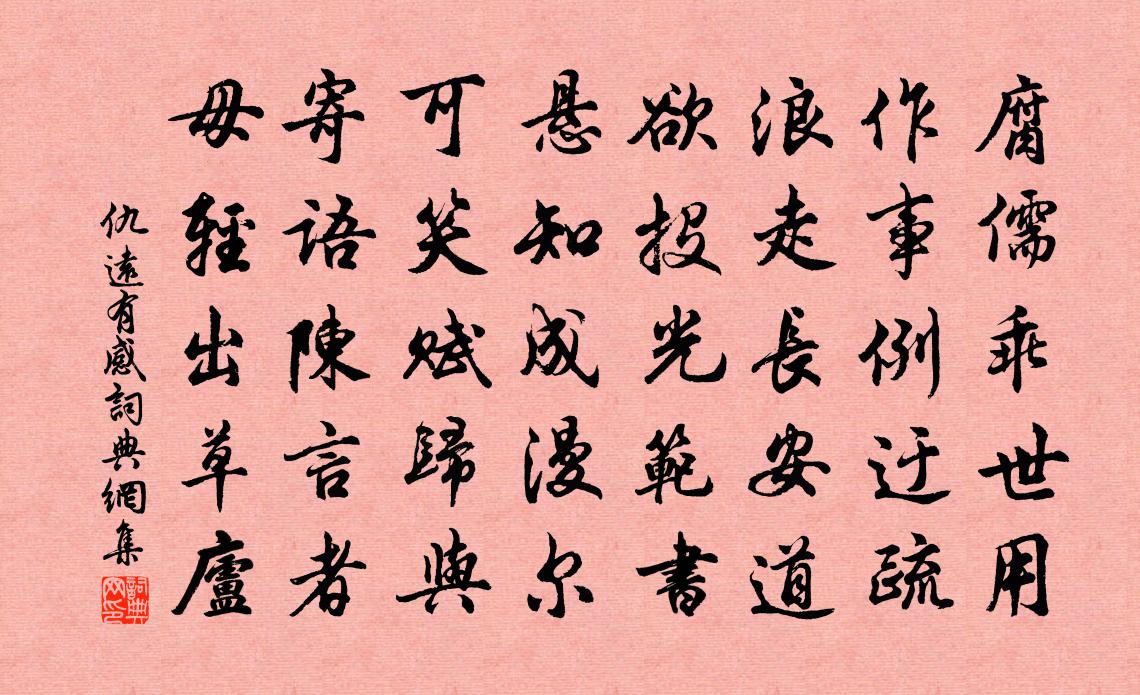 腐儒乖世用
作事例迂疏
浪走長安道
欲投光範書
懸知成漫尔
可笑賦歸與
寄語陳言者
毋輕出草廬
仇遠有感詞典網集
詞典网印